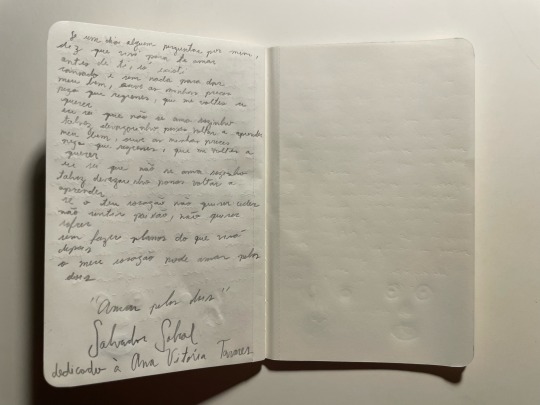 Se um dia alguém perguntar por mim,
diz que vivi para te amar
antes de ti, só existi
cansado e sem nada para dar
meu bem, ouve as minhas preces
peço que regresses, que me voltes a
querer
eu sei que não se ama sozinho
talvez devagarinho possas voltar a aprender
meu bem, ouve as minhas preces
peço que regresses, que me voltes a
querer
eu sei que não se ama sozinho
talvez devagarinho possas voltar a
aprender
se o teu coração não quiser ceder
não sentir paixão, não quiser
sofrer
sem fazer planos do que virá
depois
o meu coração pode amar pelos
dois
"Amar pelos dois"
Salvador Sobral
dedicado à Ana Vitória Tavares